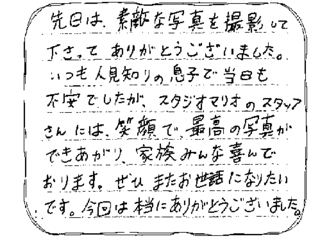 先日は、素敵な写真を撮影して
下さって ありがとうございました。
いつも人見知りの息子で当日も
不安でしたが、スタジオマリオのスタッフ
さんには、笑顔で、最高の写真が
できあがり、家族みんな喜んで
おります。ぜひ またお世話になりたい
です。今回は本当にありがとうございました。